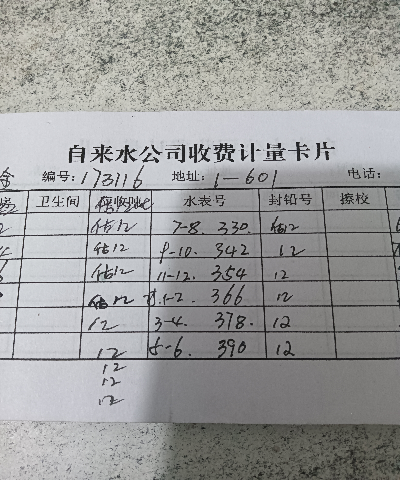 自来水公司收费计量卡片
编号: 173116 地址: 1-601 电话:
卫生间 水表号 封铅号 擦校
估12 7-8. 330. 估12
估12 9-10. 342 12
估12 11-12. 354 12
估12 1-2 366 12
12 3-4. 378. 12
12 5-6. 390 12
12
12
12